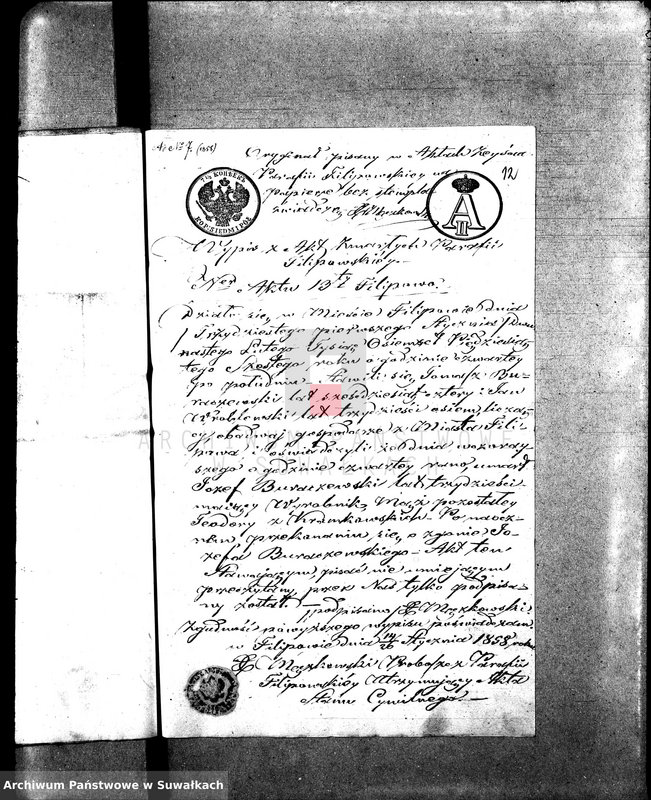 No 7. (1858)
Oryginał pisany w Aktach Zejścia
Parafii Filipowskiey na
papierze bez stempla
świadczę X Mączkowski
12
7½ КОПѢЕКЪ
KOP. SIEDM I PÓŁ
A II
Wypis z Akt Zmarłych Parafii
Filipowskiéy
Ner Aktu 13ty Filipowo.
Działo się w Mieście Filipowie dnia
Trzydziestego pierwszego Stycznia / Dwu
nastego Lutego Tysiąc Ośmset Pięćdziesią
tego Szóstego roku o godzinie czwartey
po południu Stawili się Tomasz Bu-
raczewski lat sześćdziesiąt cztery i Jan
Wróblewski lat trzydzieści ośm liczą-
cy obadwaj gospodarze z Miasta Fili
powa i oświadczyli że dnia wczoray
szego o godzinie czwartey rano umarł
Jozef Buraczewski lat trzydzieści
maiący Wyrobnik, Mąż pozostałey
Teodory z Krzywkowskich Po naocz-
nem przekonaniu się o zgonie Jó-
zefa Buraczewskiego – Akt ten
Stawaiącym pisać nie umiejącym
przeczytany przez Nas tylko podpisa-
ny został. – podpisano X Mączkowski
Zgodność powyższego wypisu poświadczam
w Filipowie dnia 14/26 Stycznia 1858 roku
X Mączkowski Proboszcz Parafii
Filipowskiéy Utrzymujący Akta
Stanu Cywilnego. –
ARCHIWUM PAŃSTWOWE
SUWAŁKACH
Archiwum Państwowe w Suwałkach